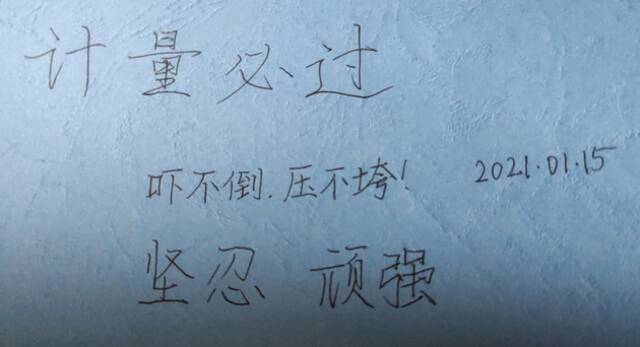 计量必过
吓不倒.压不垮! 2021.01.15
坚忍 顽强